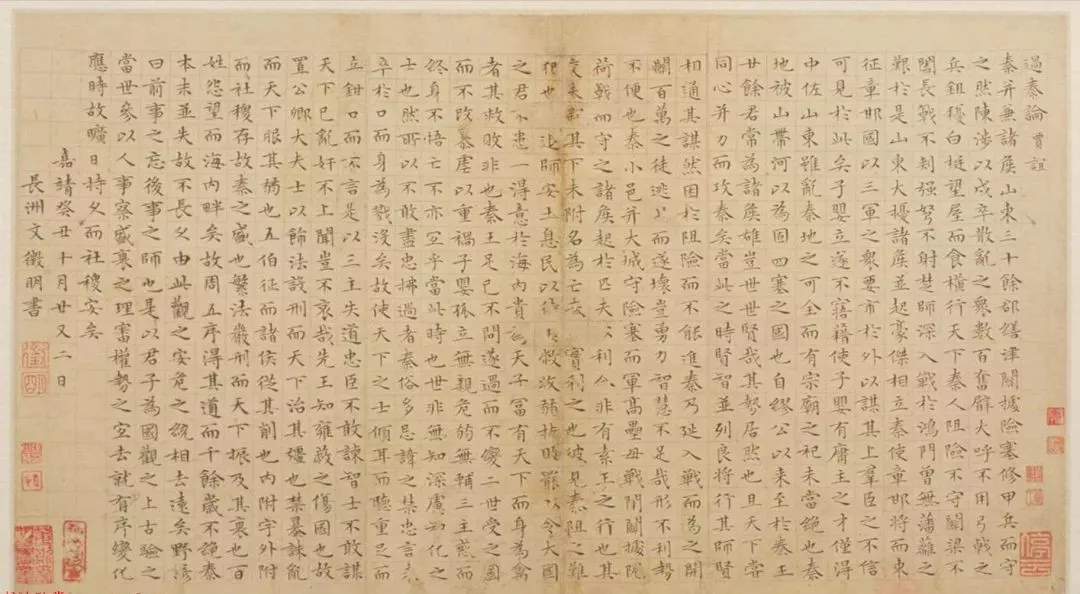 過秦論 賈誼
秦并兼諸侯山東三十餘郡繕津關據險塞修甲兵而守
之然陳涉以戍卒散亂之衆數百奮臂大呼不用弓戟之
兵鉏櫌白梃望屋而食橫行天下秦人阻險不守關梁不
闔長戟不刺强弩不射楚師深入戰於鴻門曾無藩籬之
艱於是山東大擾諸侯並起豪傑相立秦使章邯將而東
征章邯國以三軍之衆要市於外以謀其上羣臣之不信
可見於此矣子嬰立遂不寤藉使子嬰有庸主之才僅得
中佐山東雖亂秦地之可全而有宗廟之祀未當絕也秦
地被山帶河以為固四塞之國也自繆公以來至於秦王
廿餘君常為諸侯雄豈世世賢哉其勢居然也且天下嘗
同心并力而攻秦矣當此之時賢智並列良將行其師賢
相通其謀然困於阻險而不能進秦乃延入戰而為之開
關百萬之徒逃而遂壞豈勇力智慧不足哉形不利勢
不便也秦小邑并大城守險塞而軍高壘毋戰閉關據阨
荷戟而守之諸侯起於匹夫以利合非有素王之行也其
交未親其下未附名為亡秦實利之也彼見秦阻之難
犯也退師安土息民以待敝收弱扶罷以令大國
之君不患得意於海內貴為天子富有天下而身為禽
者其救敗非也秦王足已不問遂過而不變二世受之因
而不改暴虐以重禍子嬰孤立無親危弱無輔三主惑而
終身不悟亡不亦宜乎當此時也世非無知深慮知化之
士也然所以不敢盡忠拂過者秦俗多忌諱之禁忠言未
卒於口而身為戮沒矣故使天下之士傾耳而聽重足而
立鉗口而不言是以三主失道忠臣不敢諫智士不敢謀
天下已亂奸不上聞豈不哀哉先王知雍蔽之傷國也故
置公卿大夫士以飾法設刑而天下治其彊也禁暴誅亂
而天下服其弱也五伯征而諸侯從其削也內附宇外附
而社稷存故秦之盛也繁法嚴刑而天下振及其衰也百
姓怨望而海內畔矣故周五序得其道而千餘歲不絕秦
本末並失故不長久由此觀之安危之統相去遠矣野諺
曰前事之忘後事之師也是以君子為國觀之上古驗之
當世參以人事察盛衰之理審權勢之宜去就有序變化
應時故曠日持久而社稷安矣
嘉靖癸丑十月廿又二日
長洲文徵明書